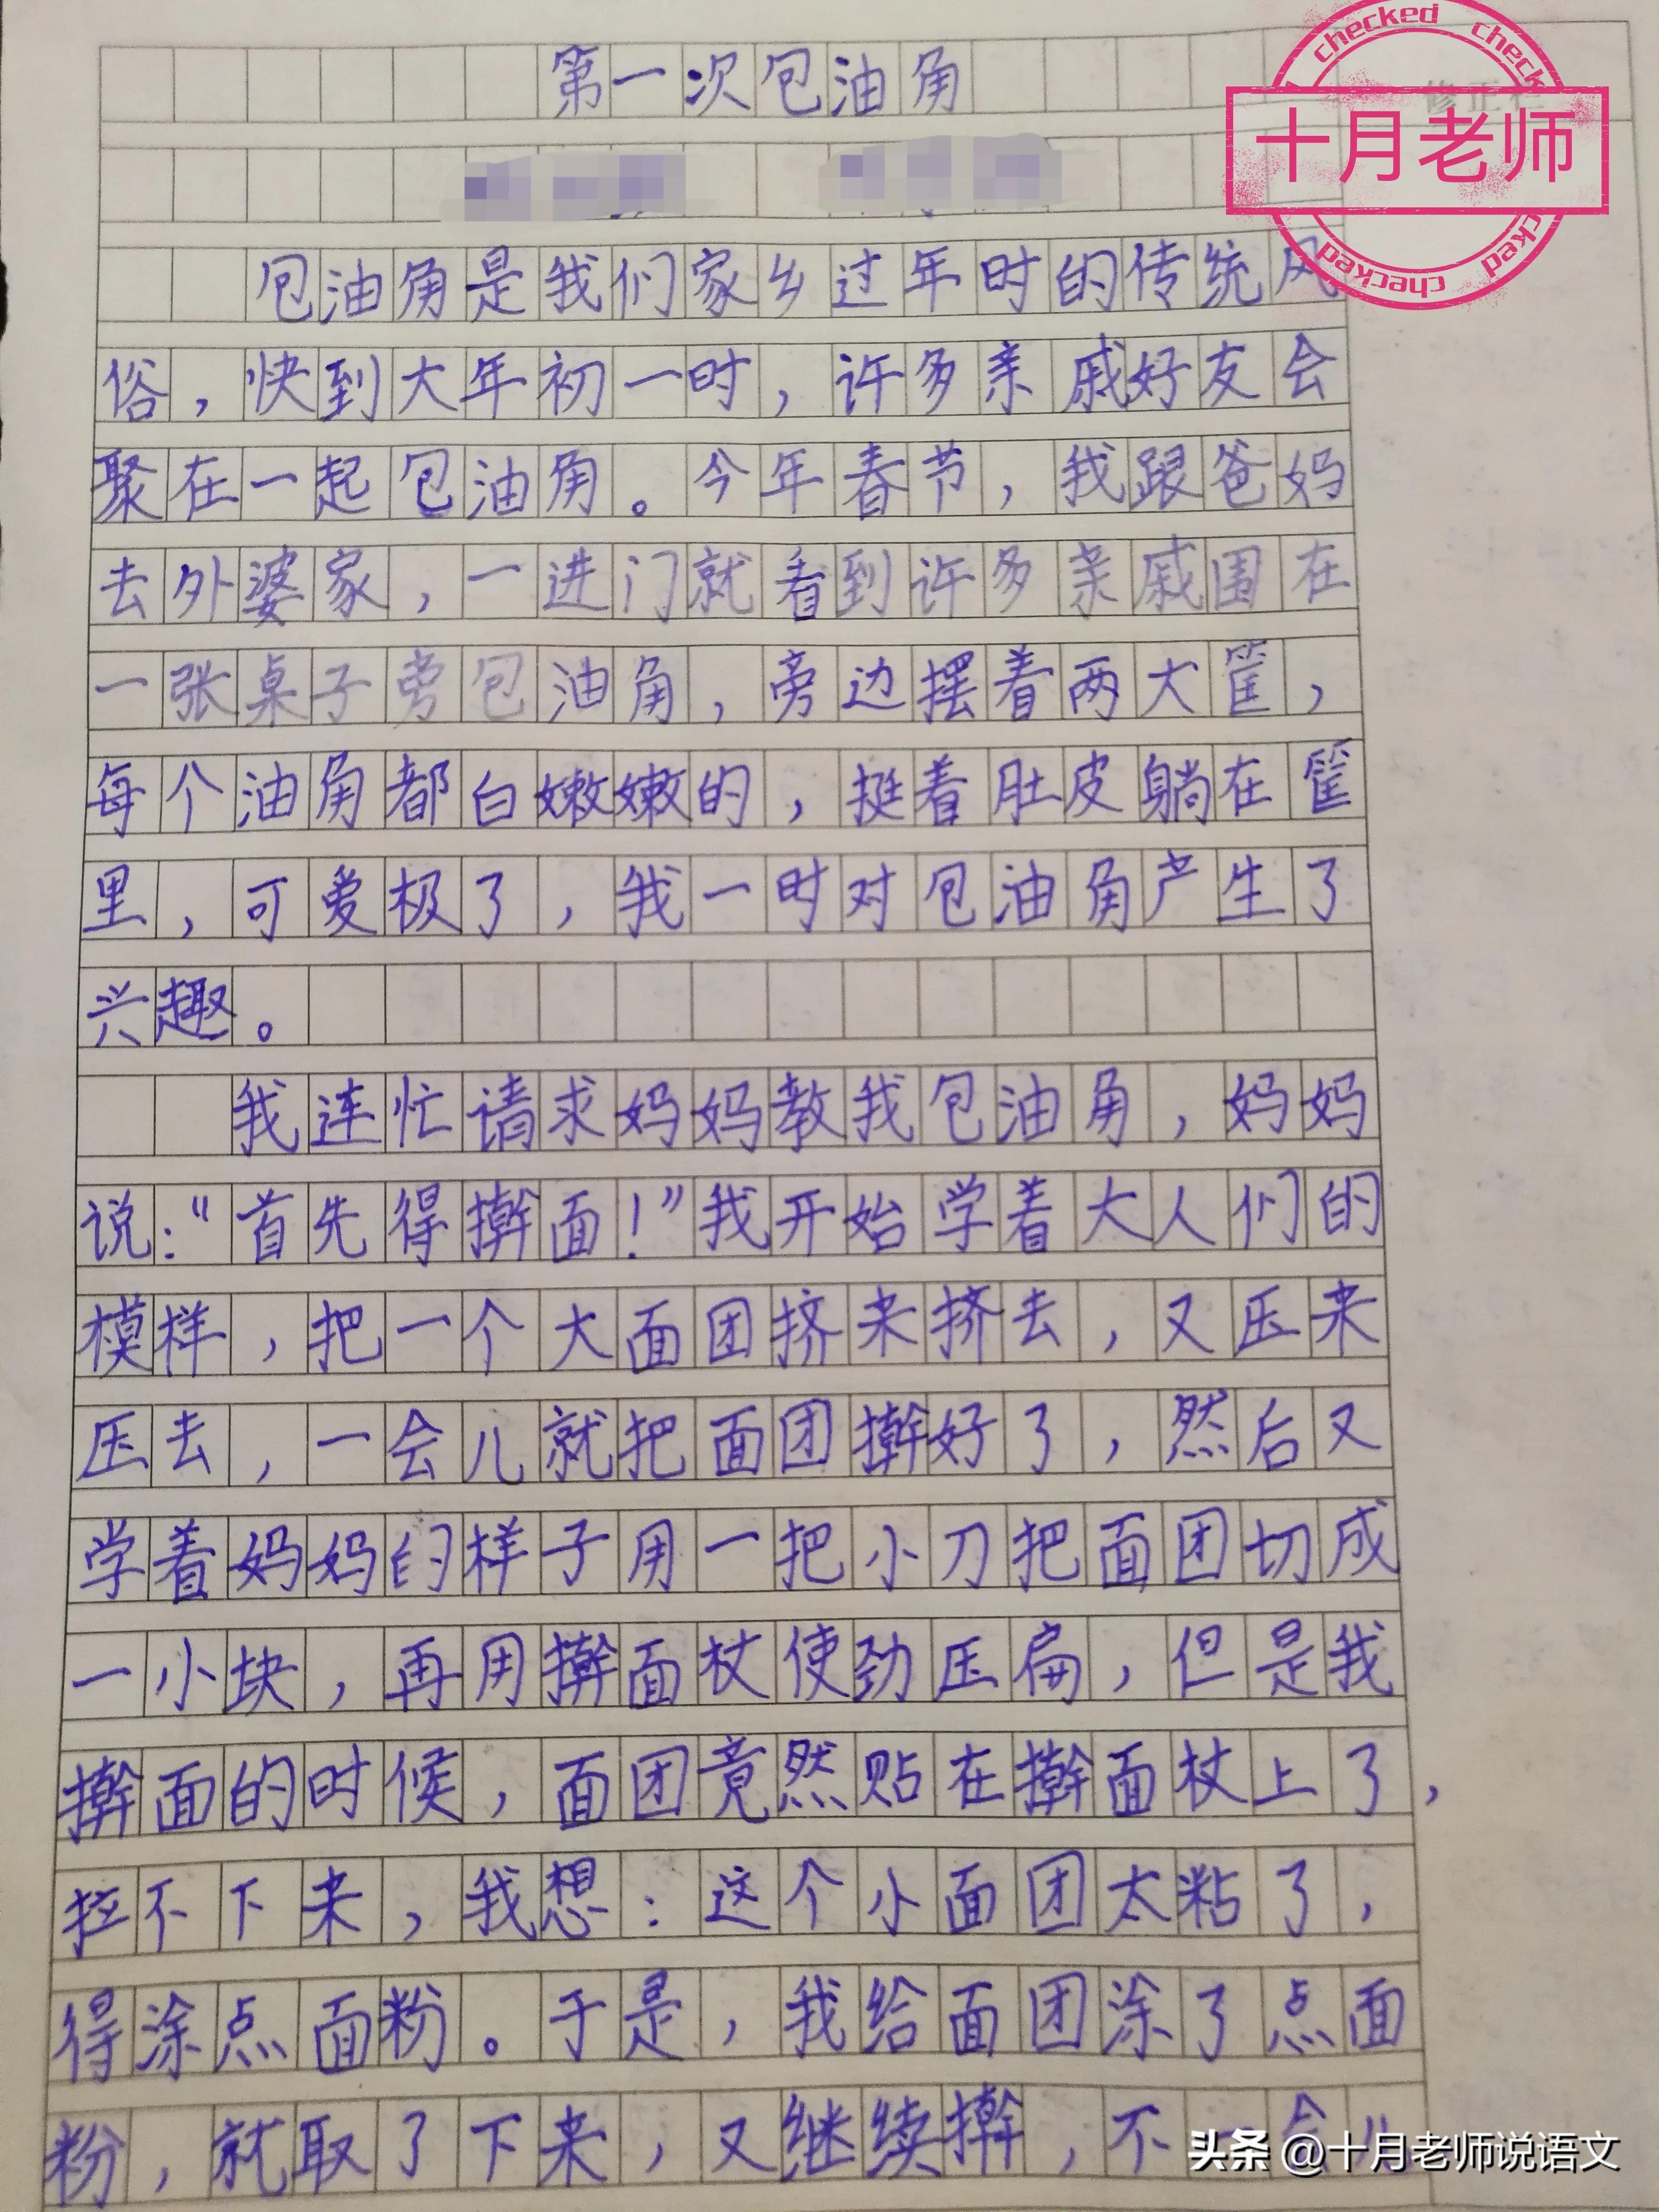 第一次包油角
checked
十月老师
包油角是我们家乡过年时的传统风
俗，快到大年初一时，许多亲戚好友会
聚在一起包油角。今年春节，我跟爸妈
去外婆家，一进门就看到许多亲戚围在
一张桌子旁包油角，旁边摆着两大筐，
每个油角都白嫩嫩的，挺着肚皮躺在筐
里，可爱极了，我一时对包油角产生了
兴趣。
我连忙请求妈妈教我包油角，妈妈
说：“首先得擀面！”我开始学着大人们的
模样，把一个大面团挤来挤去，又压来
压去，一会儿就把面团擀好了，然后又
学着妈妈的样子用一把小刀把面团切成
一小块，再用擀面杖使劲压扁，但是我
擀面的时候，面团竟然贴在擀面杖上了，
拉不下来，我想：这个小面团太粘了，
得涂点面粉。于是，我给面团涂了点面
粉，就取了下来，又继续擀，不一会儿
头条 @十月老师说语文